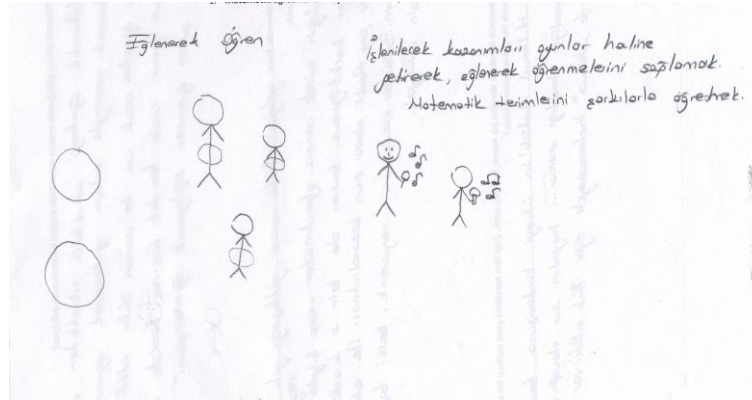 Eğlenerek Öğren
İşlenilecek kazanımları oyunlar haline
getirerek, eğlenerek öğrenmelerini sağlamak.
Matematik terimlerini şarkılarla öğretmek.